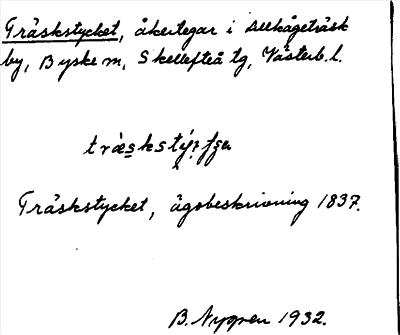 Träskstycket, åkertegar i Selkågeträsk
by, Byske m, Skellefteå tg, Västerb. l.
Träskstycket, ägobeskrivning 1837.
B. Nygren 1932.